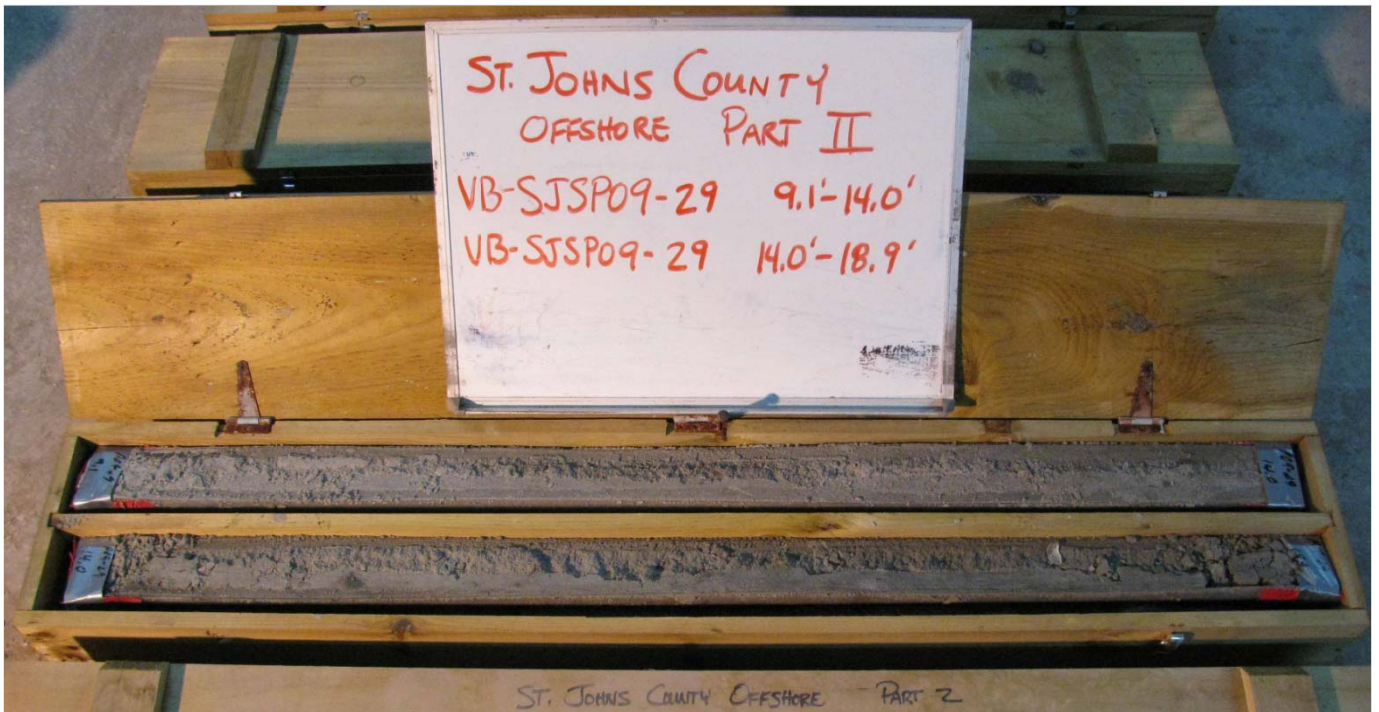 ST. JOHNS COUNTY
OFFSHORE PART II
VB-SJSP09-29 9.1'-14.0'
VB-SJSP09-29 14.0'-18.9'
9.1
14.0
14.0
ST. JOHNS COUNTY OFFSHORE PART 2